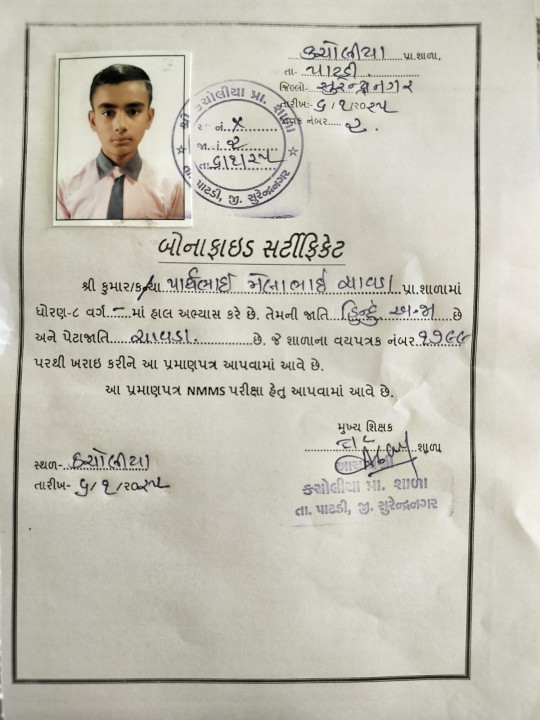 કચોલીયા પ્રા.શાળા,
તા- પાટડી
જિલ્લો- સુરેન્દ્રનગર
તારીખ:- ૬/૧/૨૦૨૫
જાવક નંબર..... ૨.
શ્રી કચોલીયા પ્રા. શાળા
નં. X
જા. નં. ૨
તા. ૬/૧/૨૫
તા. પાટડી, જી. સુરેન્દ્રનગર
બોનાફાઇડ સર્ટીફિકેટ
શ્રી કુમાર/કન્યા પાર્થભાઈ મેલાભાઈ ચાવડા પ્રા.શાળામાં
ધોરણ-૮ વર્ગ.–.માં હાલ અભ્યાસ કરે છે. તેમની જાતિ હિન્દુ અ.જા છે
અને પેટાજાતિ ચાવડા છે. જે શાળાના વયપત્રક નંબર ૧૭૯૯
પરથી ખરાઇ કરીને આ પ્રમાણપત્ર આપવામાં આવે છે.
આ પ્રમાણપત્ર NMMS પરીક્ષા હેતુ આપવામાં આવે છે.
મુખ્ય શિક્ષક
શાળા
સ્થળ- કચોલીયા
તારીખ- ૬/૧/૨૦૨૫
કચોલીયા પ્રા. શાળા
તા. પાટડી, જી. સુરેન્દ્રનગર